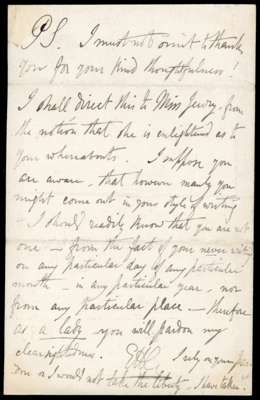 P.S. I must not omit to thank
you for your kind thoughtfulness!
I shall direct this to Miss Jewry - from
the notion that she is enlightened as to
your whereabouts. I suppose you
are aware - that however manly you
might come out in your style of writing
- I should readily know that you are not
one - from the fact of your never writing
on any particular day of any particular
month - in any particular year, nor
from any particular place - therefore
as a lady you will pardon my
clearsightedness. I rely on your
or I would not take the liberty - I have taken!